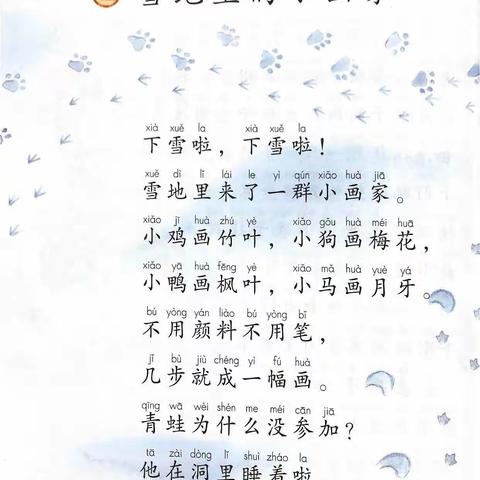 雪地里的小画家
xià xuě la xià xuě la
下雪啦，下雪啦！
xuě dì lǐ lái le yì qún xiǎo huà jiā
雪地里来了一群小画家。
xiǎo jī huà zhú yè xiǎo gǒu huà méi huā
小鸡画竹叶，小狗画梅花，
xiǎo yā huà fēng yè xiǎo mǎ huà yuè yá
小鸭画枫叶，小马画月牙。
bú yòng yán liào bú yòng bǐ
不用颜料不用笔，
jǐ bù jiù chéng yì fú huà
几步就成一幅画。
qīng wā wèi shén me méi cān jiā
青蛙为什么没参加？
tā zài dòng lǐ shuì zháo la
他在洞里睡着啦